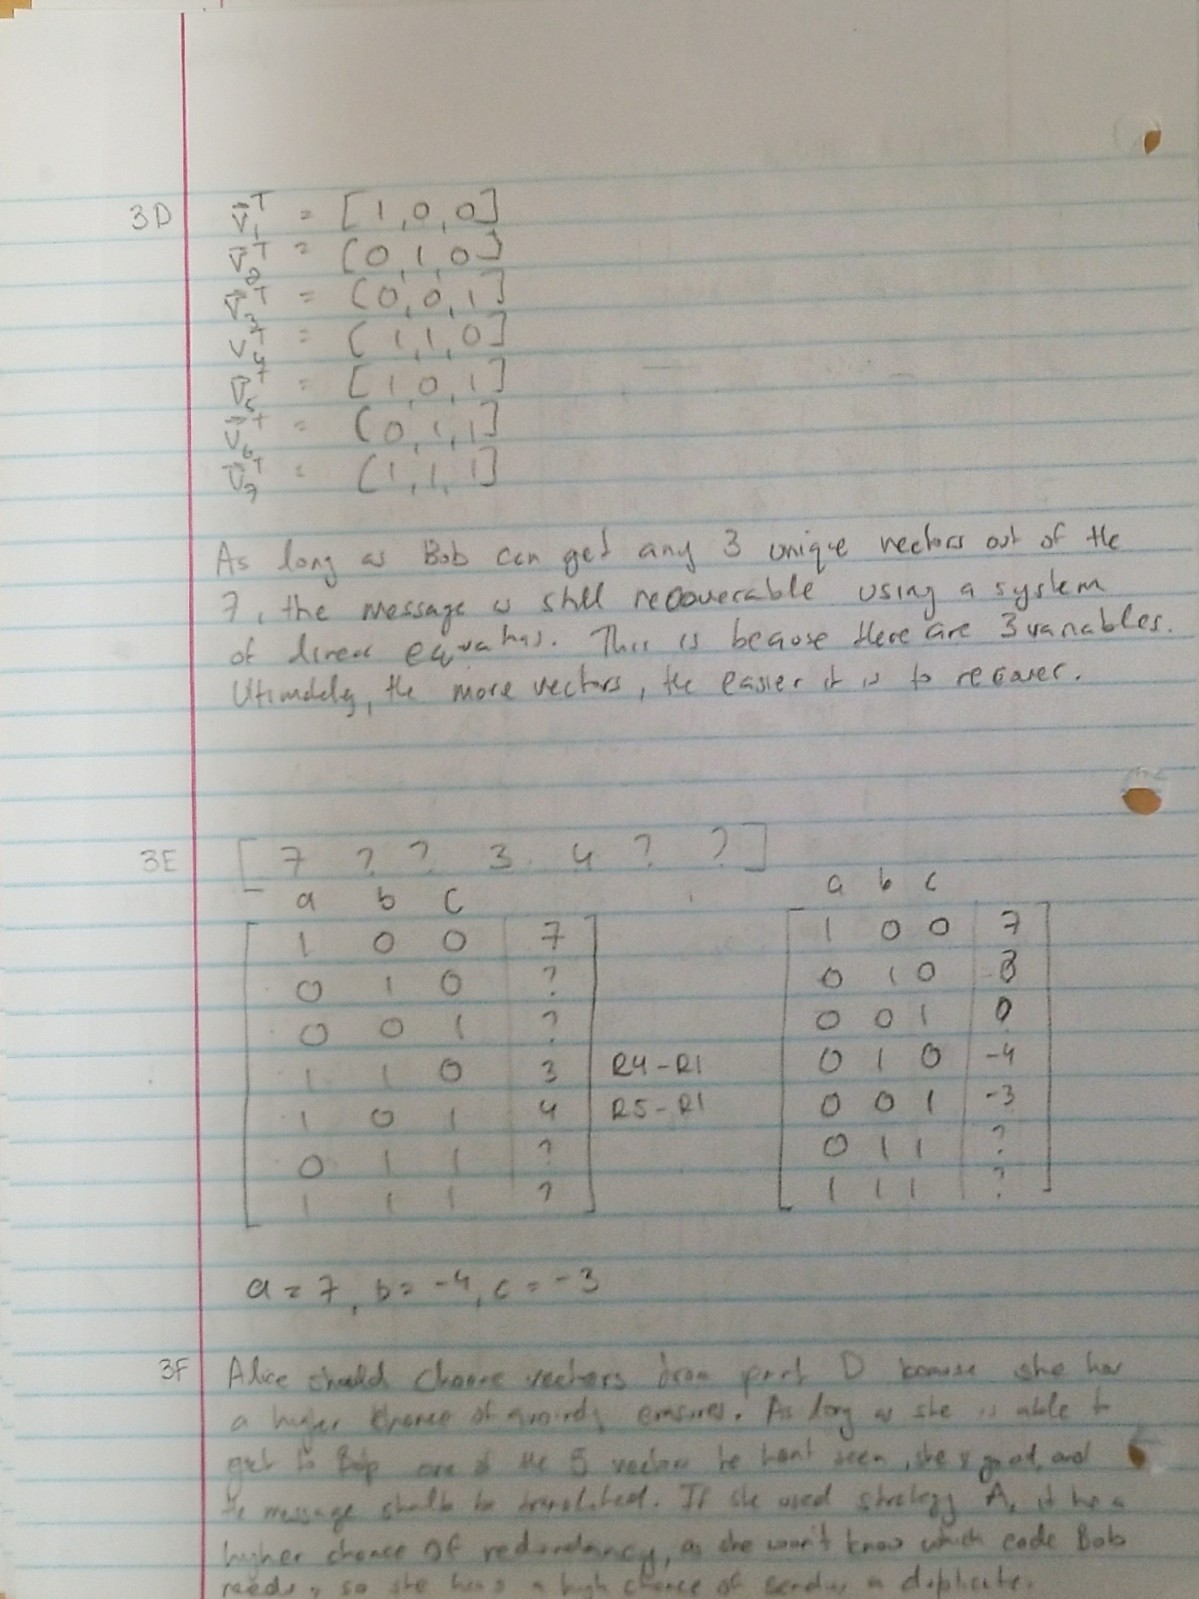 3D v⃗₁ᵀ = [1,0,0]
v⃗₂ᵀ = [0,1,0]
v⃗₃ᵀ = [0,0,1]
v₄ᵀ = [1,1,0]
v⃗₅ᵀ = [1,0,1]
v⃗₆ᵀ = [0,1,1]
v⃗₇ᵀ = [1,1,1]
As long as Bob can get any 3 unique vectors out of the
7, the message is still recoverable using a system
of linear equations. This is because there are 3 variables.
Ultimately, the more vectors, the easier it is to recover.
3E [ 7 ? ? 3 4 ? ? ]
a b c
1 0 0 | 7
0 1 0 | ?
0 0 1 | ?
1 1 0 | 3 R4-R1
1 0 1 | 4 R5-R1
0 1 1 | ?
1 1 1 | ?
a b c
1 0 0 | 7
0 1 0 |
0 0 1 |
0 1 0 | -4
0 0 1 | -3
0 1 1 | ?
1 1 1 | ?
a = 7, b = -4, c = -3
3F Alice should choose vectors from part D because she has
a higher chance of erasures. As long as she is able to
get to Bob one of the 5 vectors he hasn't seen, she's good, and
the message shall be translated. If she used strategy A, it has a
higher chance of redundancy, as she won't know which code Bob
needs, so she has a high chance of sending a duplicate.